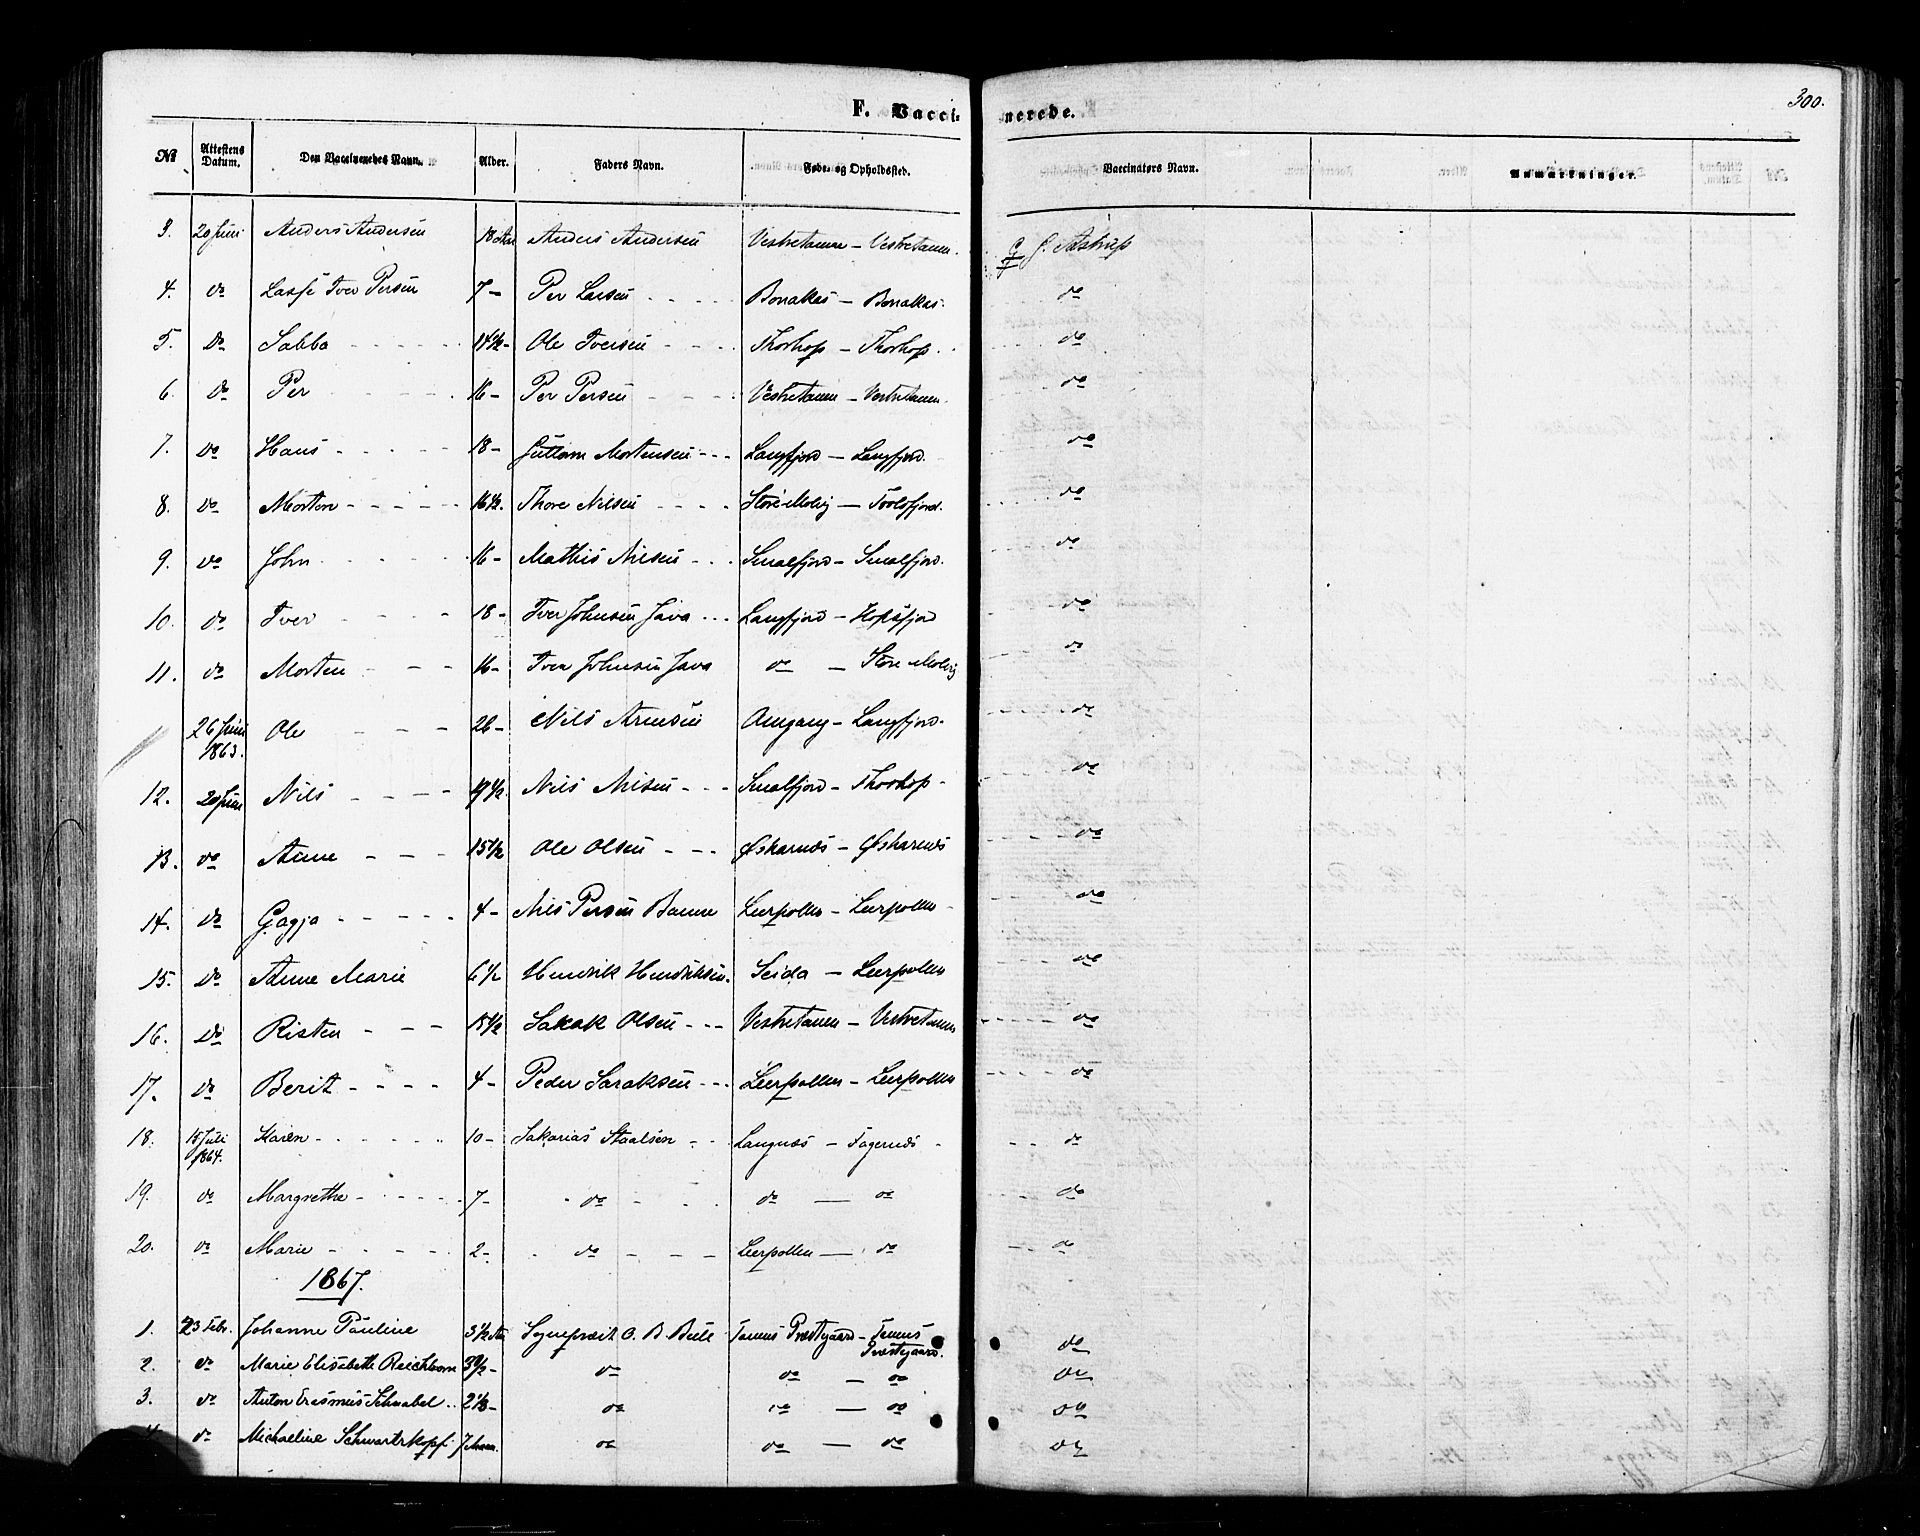 300.
F. Vaccinerede.
No | Attestens Datum. | Den Vaccineredes Navn. | Alder. | Faders Navn. | Føde- og Opholdssted. | Vaccinatørs Navn. | Anmærkninger.
3. 20 Juni Anders Andersen 18 Aar Anders Andersen Vestretanen - Vestretanen. Astrup
4. do Lasse Iver Persen 7 - Per Larsen Bonakas - Bonakas. do
5. do Sabba 14½ - Ole Iversen Thorhop - Thorhop. do
6. do Per 16 - Per Persen Vestretanen - Vestretanen. do
7. do Hans 18 - Guttorm Mortensen Langfjord - Langfjord. do
8. do Morten 16½. Thore Nilsen Store Molvig - do
9. do John 16 - Mathis Nilsen Smalfjord - Smalfjord. do
10. do Iver 18 - Iver Johnsen Java Langfjord - Hopsfjord do
11. do Morten 16 - Iver Johnsen Java do - Store Molvig do
26 Juni 1863. Ole 26 - Nils Arnesen Amgang - Langfjord. do
12. 20 Juni Nils Nils Nilsen Smalfjord - Thorhop - do
13. do Anne 15½ Ole Olsen Øskarnæs - Øskarnæs do
14. do Gagja 4 - Nils Persen Banne Leerpollen - Leerpollen do
15. do Anne Marie 6½ Hendrik Hendriksen. Seida - Leerpollen do
16. do Risten 15½ Sakak Olsen Vestretanen - Vestretanen do
17. do Berit 4 - Peder Saraksen Leerpollen - Leerpollen do
18. 15 Juli 1864. Karen 10 - Sakarias Staalsen Langnæs - Fagernæs do
19. do Margrethe 7 - do do - do do
20. do Marie 2 - do Leerpollen - do do
1867.
1. 23 Febr. Johanne Pauline 3½ Aar Sognepræst O. B. Bull Tanens Præstgaard - Tanens Præstegaard. do
2. do Marie Elisabeth Reichborn do do - do do
3. do Anton Erasmus Schnabel do do - do do
4. do Michaeline Schwartzkopf 7 do do - do do